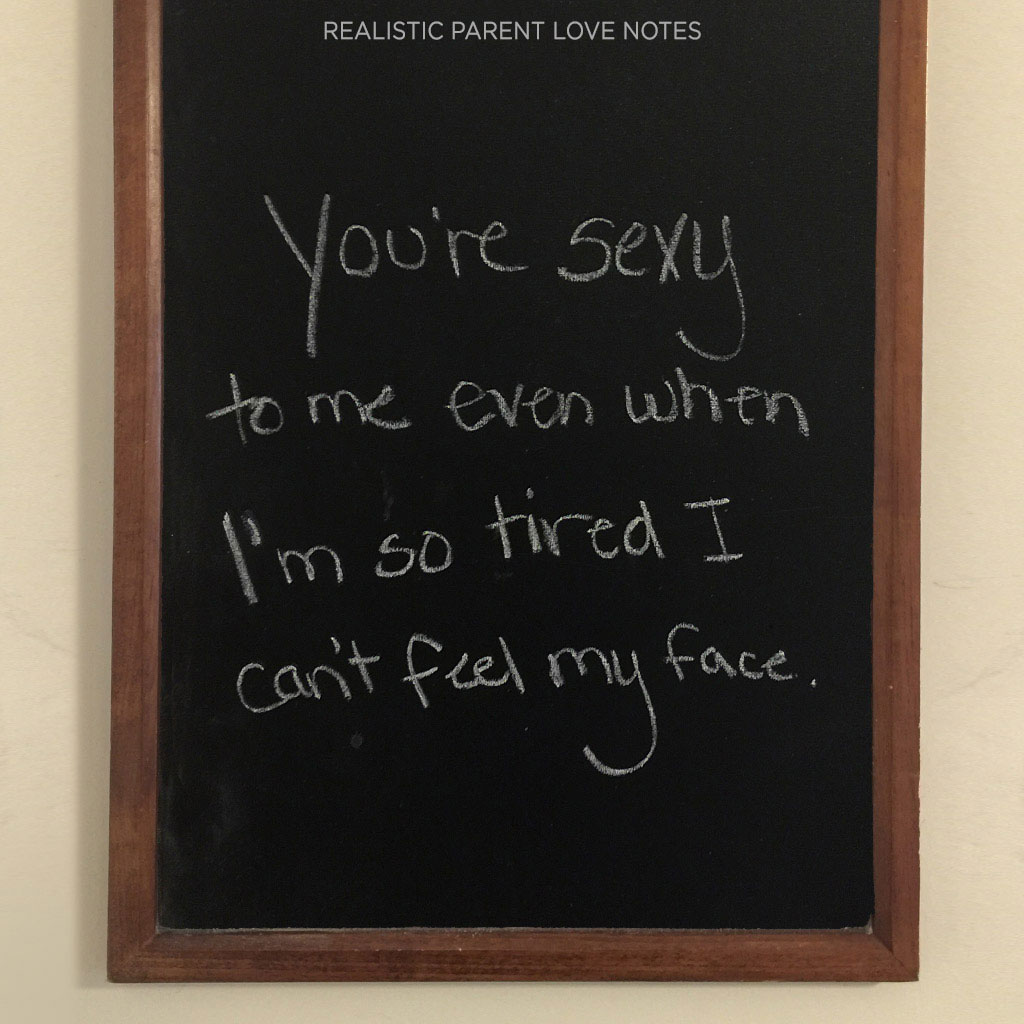 REALISTIC PARENT LOVE NOTES
You're sexy
to me even when
I'm so tired I
can't feel my face.